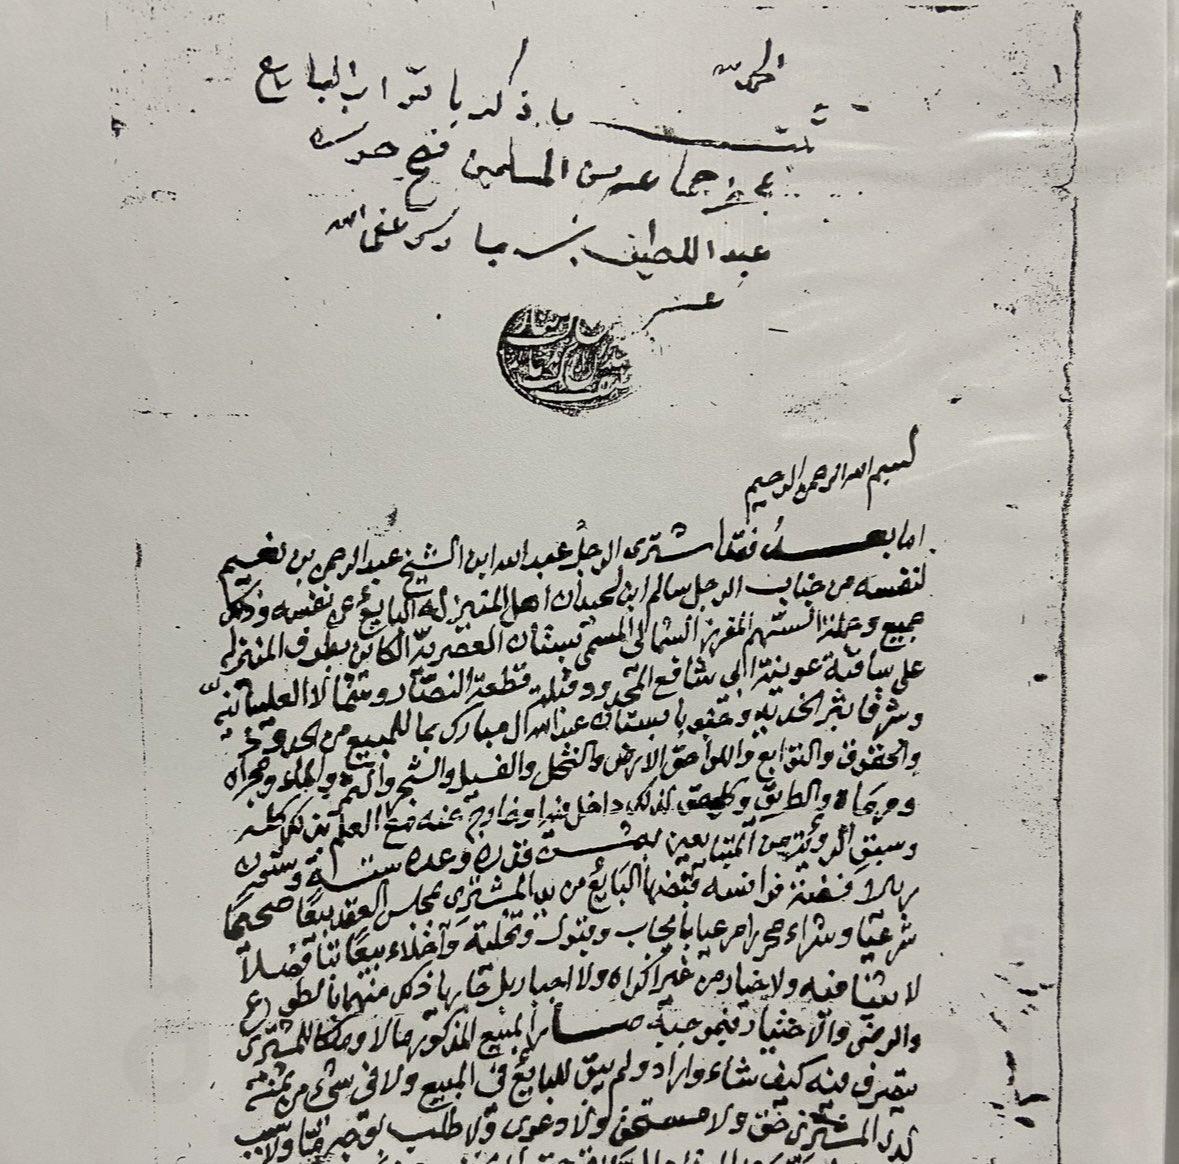 الحمد لله
ثبت ما ذكر باقرار البايع
عند جماعة من المسلمين فصح حرره
عبد اللطيف بن مبارك عفى الله
عنه
بسم الله الرحمن الرحيم
اما بعد فقد اشترى الرجل عبد الله ابن الشيخ عبد الرحمن بن نعيم
لنفسه من جناب الرجل سالم ابن لحيدان اهل المنيزله البايع عن نفسه وذلك
جميع وجملة السهم المفروز الشمالي المسمى بستان العصرية الكائن بطرف المنيزله
على ساقية عوينة الى شافع الحد وقبلة قطعة النصار وشمالا
وشرقا بئر الخدية وجنوبا بستان عبد الله ال مبارك بما للمبيع من الحدود
والحقوق والتوابع واللواحق الارض والنخل والفسيل والشجر والماء ومجراه
ومرماه والطريق وكل حق لذلك داخل فيه او خارج عنه مع العلم بذلك كله
وسبق الرؤية من المتبايعين بثمن قدره وعدده ستة وستون
ريالا فضة فرانسه قبضها البايع من يد المشترى بمجلس العقد بيعا صحيحا
شرعيا وشراء صريحا مرعيا بايجاب وقبول وتخلية واخلاء بيعا بتا فصلا
لا ثنيا فيه ولا خيار من غير اكراه ولا اجبار بل جا ذلك منهما بالطوع
والرضى والاختيار فبموجبه صار المبيع المذكور مالا وملكا للمشترى
يتصرف فيه كيف شاء واراد ولم يبق للبايع في المبيع ولا في شيء من ثمنه
لدى المشترى حق ولا مستحق ولا دعوى ولا طلب بوجه ما ولا سبب